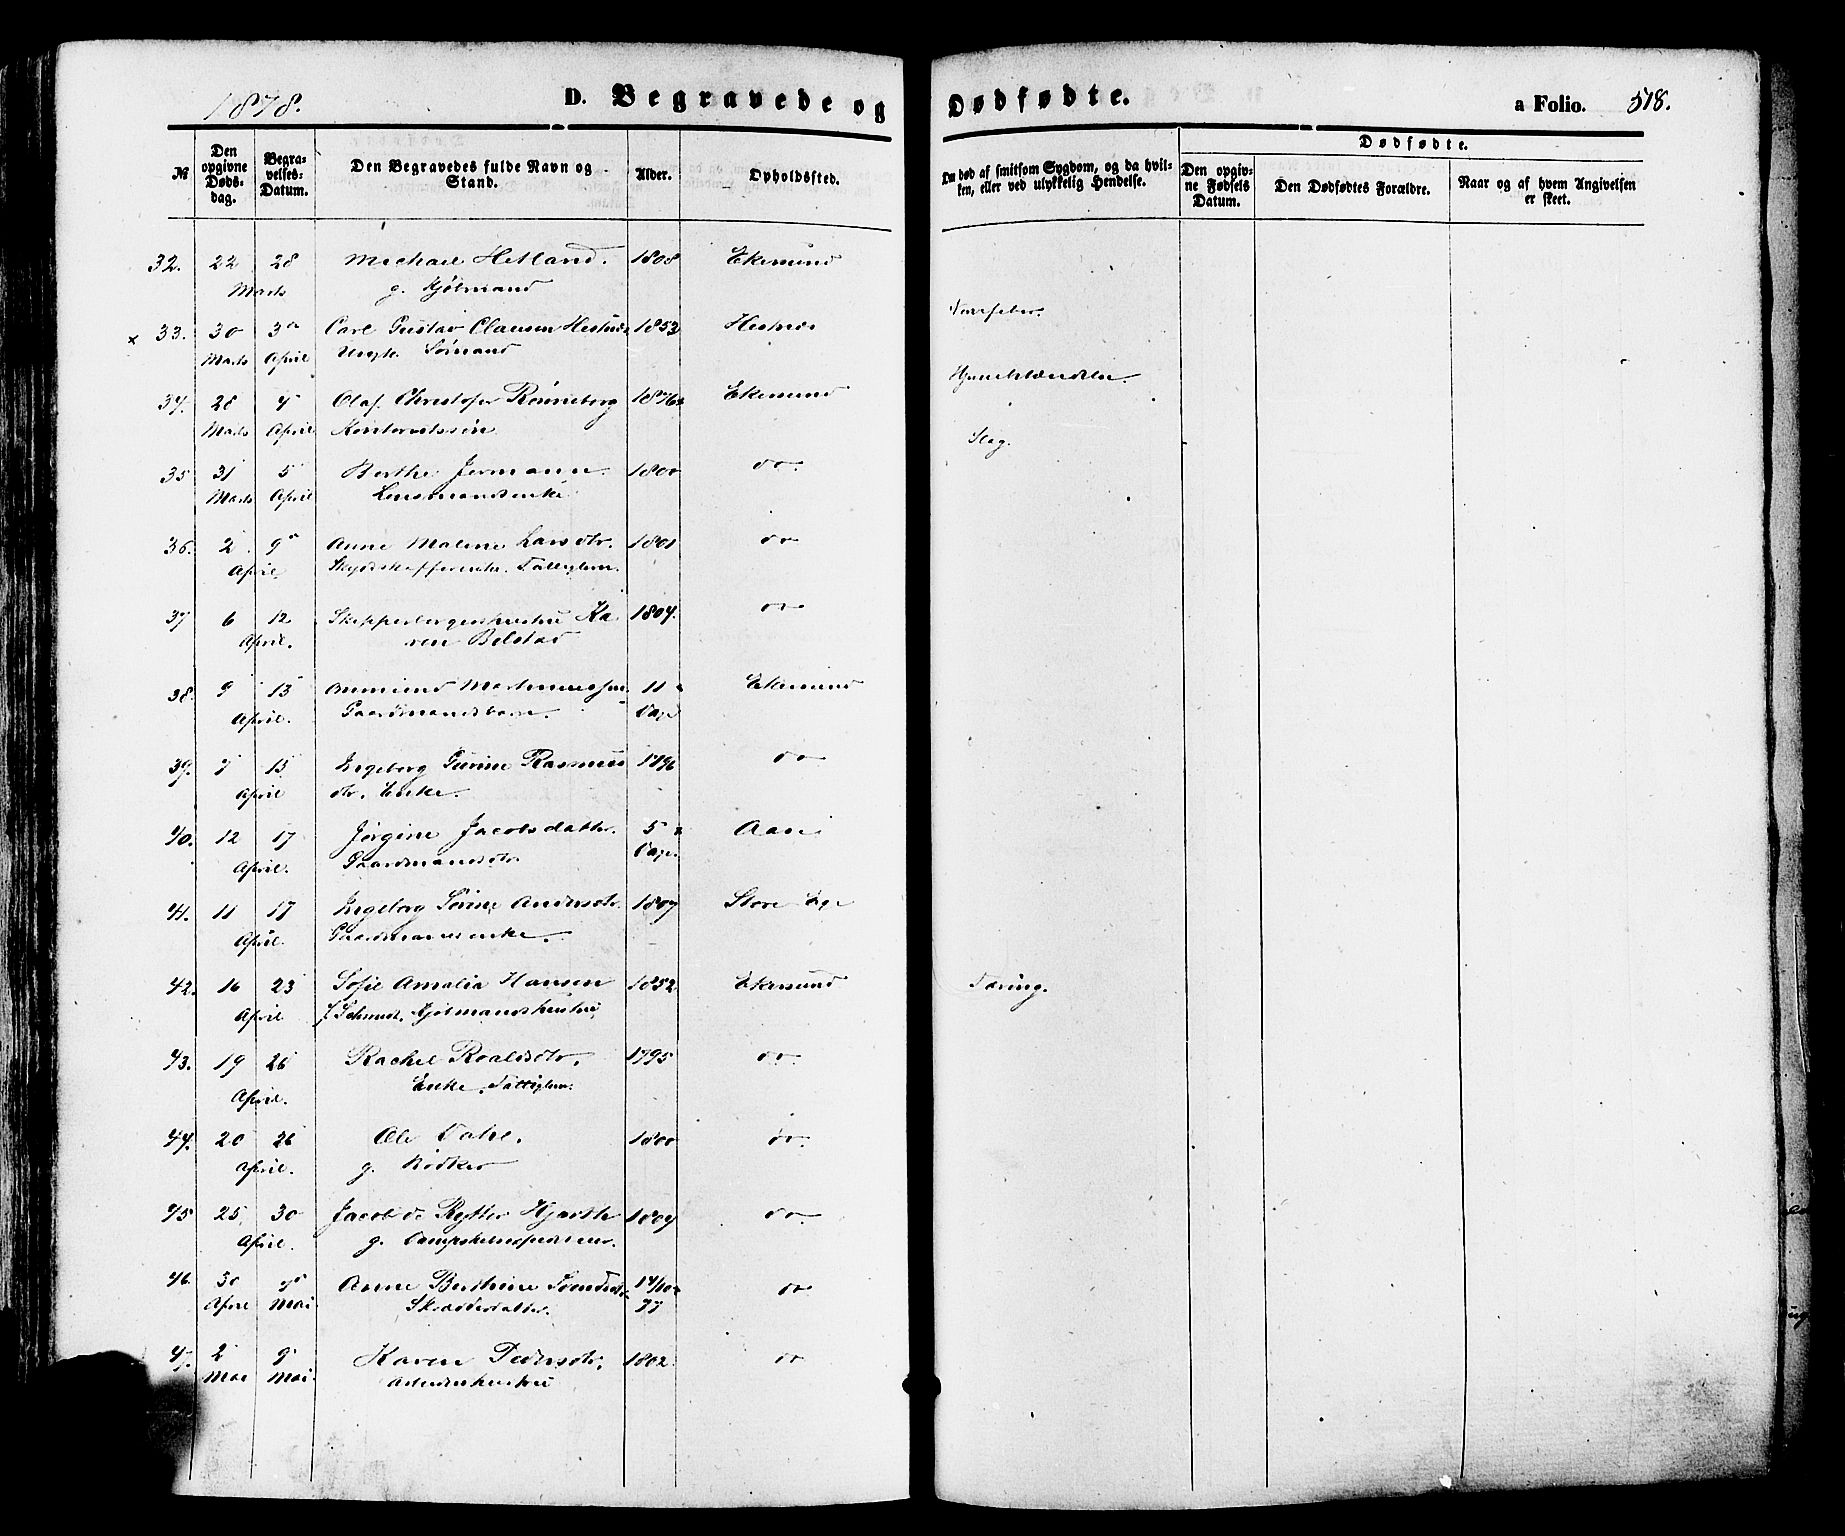 1878.
D. Begravede og
Dødfødte.
a Folio. 518.
№
Den opgivne Dødsdag.
Begravelses-Datum.
Den Begravedes fulde Navn og Stand.
Alder.
Opholdsfted.
Om død af smitsom Sygdom, og da hvilken, eller ved ulykkelig Hendelse.
Dødfødte.
Den opgivne Fødsels Datum.
Den Dødfødtes Forældre.
Naar og af hvem Angivelsen er skeet.
32. 22 28 Michael Hetland. 1808 Ekersund
Marts g. Kjøbmand
x 33. 30 3 Carl Gustav Clausen Hestnes 1853 Hestnes
Marts April Ungk. Sømand
34. 28 4 Olaf Christofer Rønneberg 1876 Ekersund
Marts April
35 31 5 Berthe Jermann. 1800 do.
Marts April Lensmandsenke
36. 2 9 Anne Malene Larsdtr. 1801 do
April Skydsskafferenke. Fattiglem.
37 6 12 Skipperborgerhustru Ka- 1804. do
April. ren Bolstad
38. 9 13 Anmund Martinussen 11 Ekersund
April. Gaardmandsbarn. Dage
39. 7 15 Ingeborg Gurine Rasmus 1796 do
April dtr. Enke.
40. 12 17 Jørgine Jacobsdatter. 5 Aase
April. Gaardmandsdtr. Dage
41. 11 17 Ingeborg Sirine Andersdtr. 1807 Store Ege
April. Gaardmandsenke.
42. 16 23 Sofie Amalia Hansen 1852 Ekersund Tæring.
April f. Schmidt, Kjøbmandshustru
43. 19 26 Rachel Roaldsdtr. 1795 do.
April. Enke, Fattiglem.
44. 20 26 Ole Dahl. 1800 do.
April. g. Bødker
45 25 30 Jacob de Rytter Kjerulf 1807 do.
April. g. Dampskibsexpediteur.
46. 30 7 Anne Berthine Svendsdtr 14/10 do
April Mai Skrædderdatter. 77
47. 2 9 Karen Pedersdtr. 1802. do
Mai Mai. Arbeiderhustru
Nervefeber.
Hjernebetændelse.
Slag.